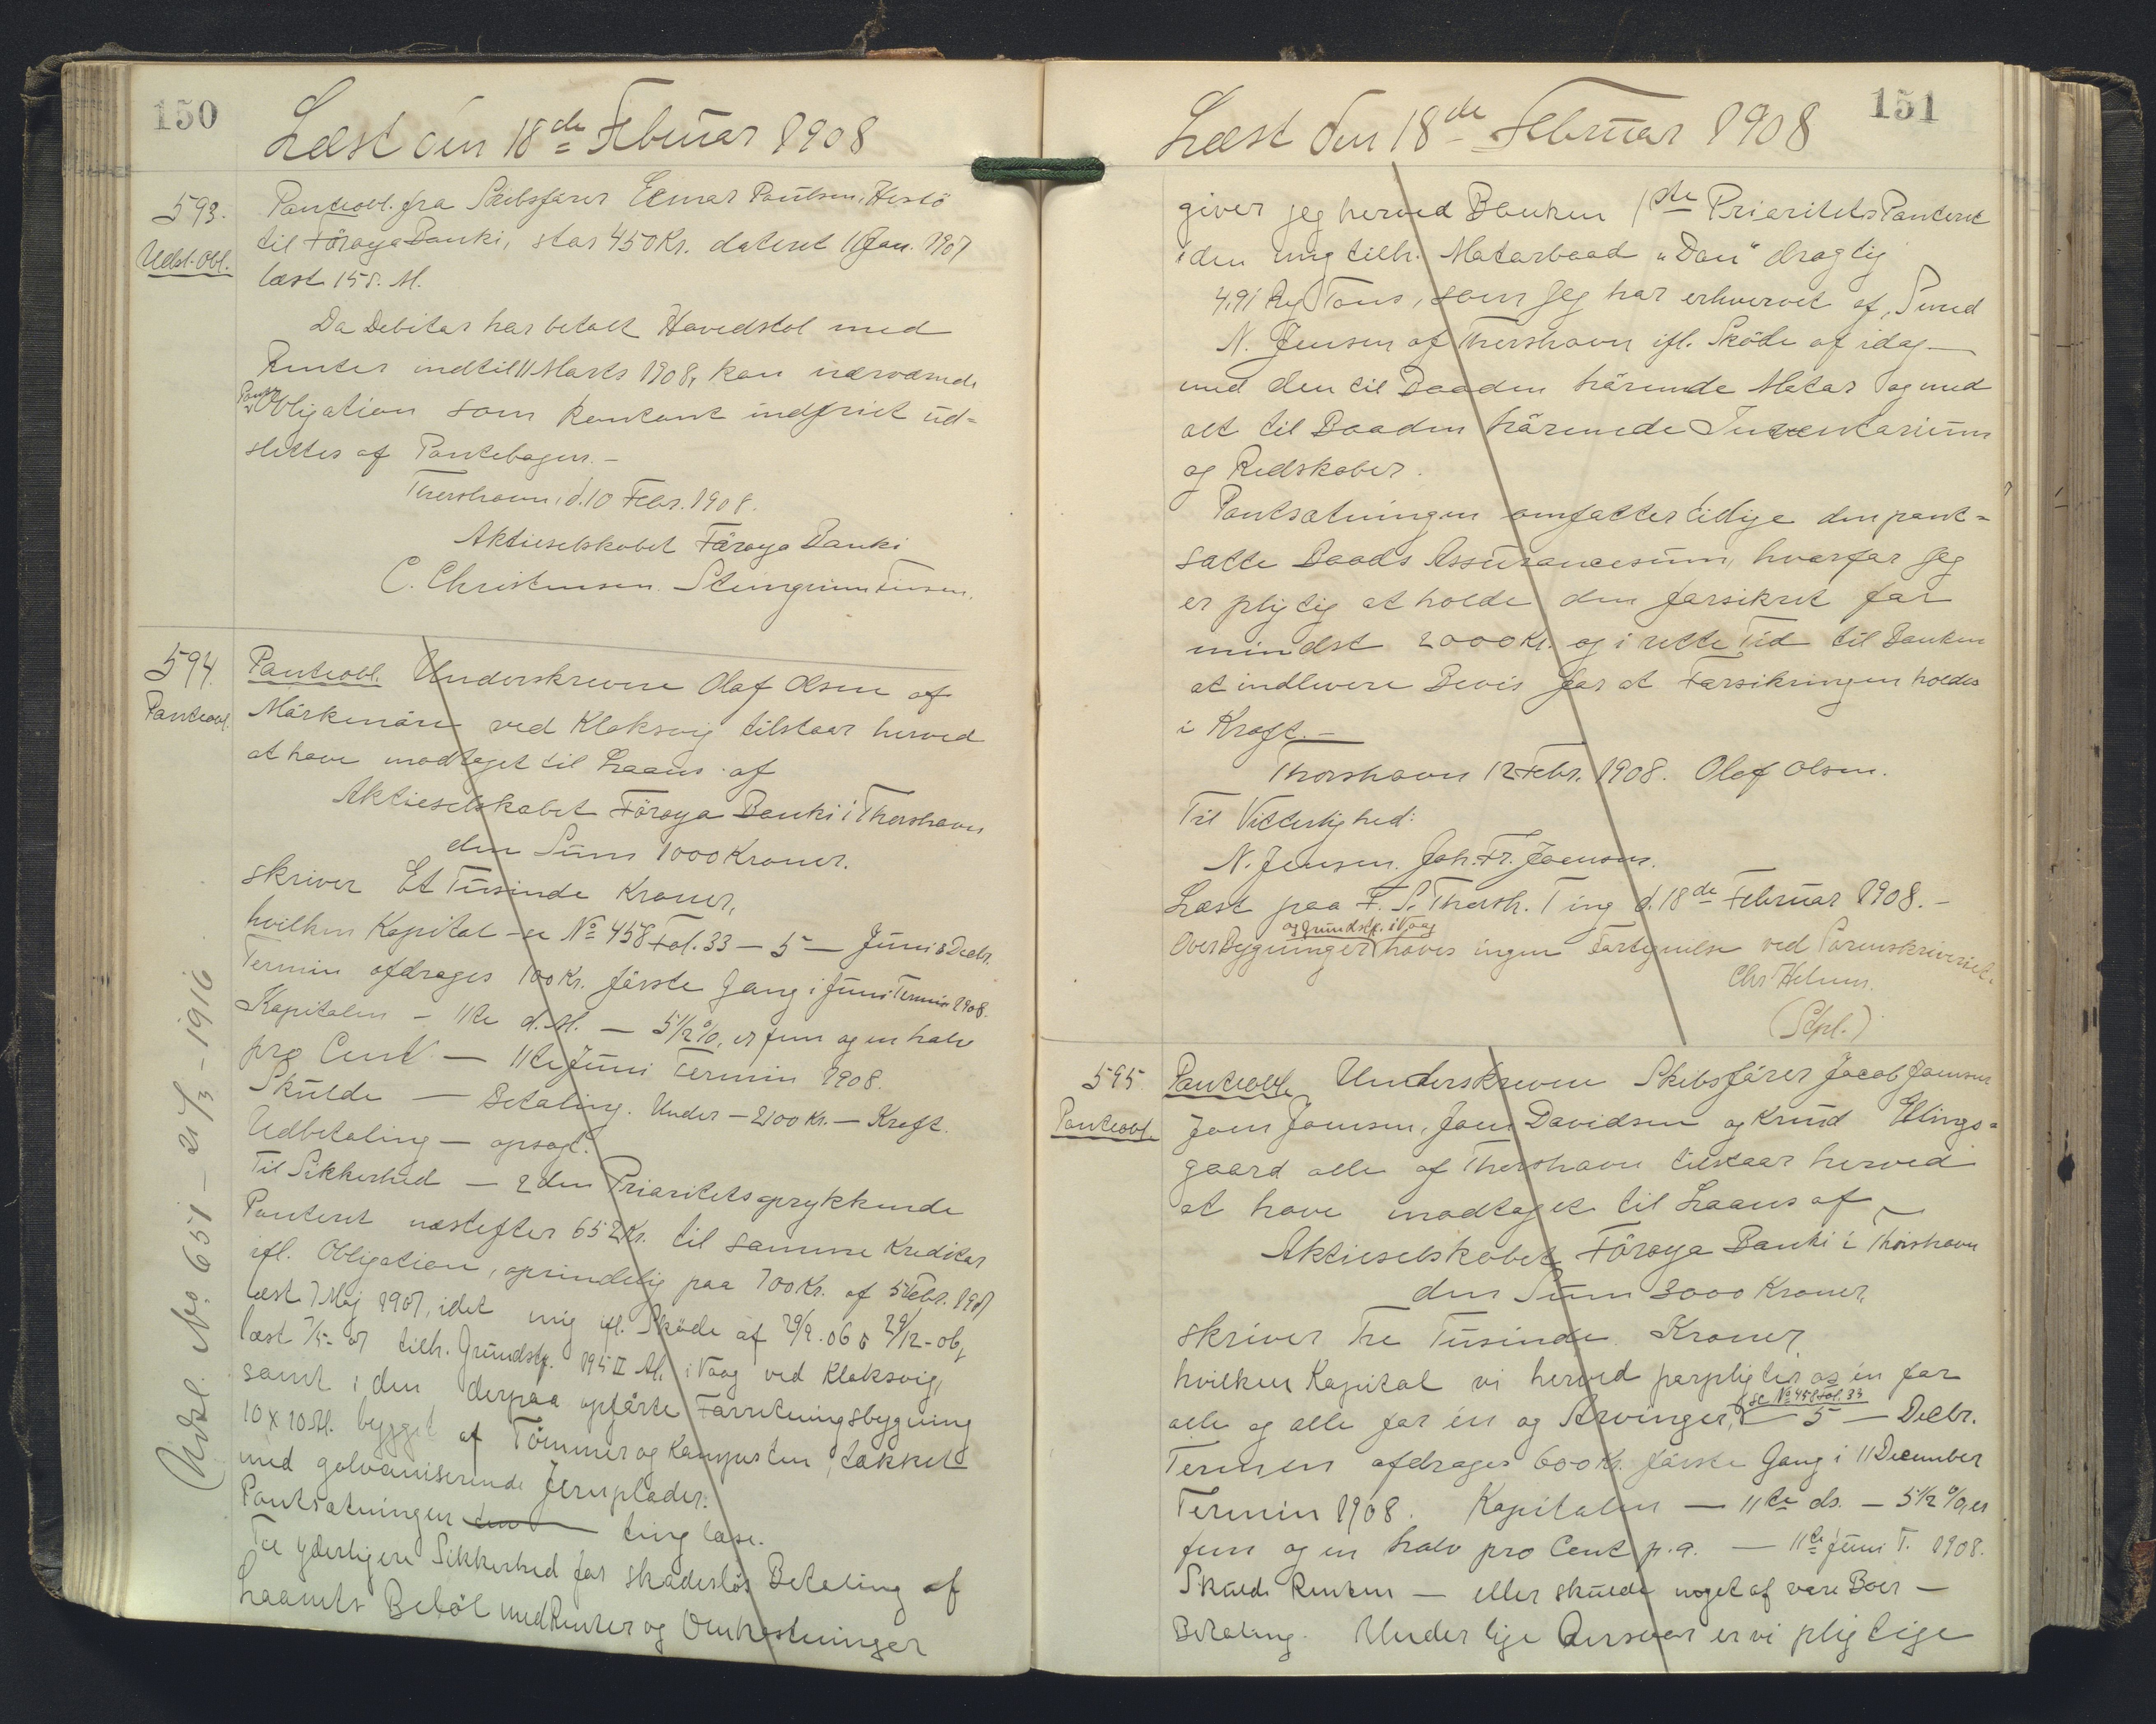 150
Læst den 18de Februar 1908
593.
Udsl. Obl.
Panteobl. fra Skibsfører Einar Poulsen, Hestö
til Föroya Banki, stor 450 Kr. dateret 11 Jan. 1907
læst 15 s. M.
Da Debitor har betalt Hovedstol med
Renter indtil 11 Marts 1908, kan nærværende
Pante
Obligation som kontant indfriet ud=
slettes af Pantebogen.-
Thorshavn, d. 10 Febr. 1908.
Aktieselskabet Föroya Banki
C. Christensen. Steingrim
594.
Panteobl.
Panteobl. Underskrevne Olaf Olsen af
ved Klaksvig tilstaar herved
at have modtaget til Laans af
Aktieselskabet Föroya Banki i Thorshavn
den Sum 1000 Kroner.
skriver Et Tusinde Kroner,
hvilken Kapital - se No 458 Fol. 33 - 5 - Juni & Decbr.
Termin afdrages 100 Kr. første Gang i Juni Termin 1908.
Kapitalen - 11te d. M. - 5½ %, er fem og en halv
pro Cent - 11te Juni Termin 1908.
Skulde - Betaling. Under - 2100 Kr. - Kraft.
Udbetaling - opsagt.
Til Sikkerhed - 2den Prioritets oprykkende
Panteret næstefter 652 Kr. til samme Kreditor
ifl. Obligation, oprindelig paa 700 Kr. af 5 Febr. 1907
læst 7 Maj 1907, i det mig ifl. Sköde af 29/9. 06 & 29/12 - 06,
læst 7/5 - 07 tilh. Grundstk. 195 II Al. i Vaag ved Klaksvig,
samt i den derpaa opförte Forretningsbygning
10 x 10 Al. bygget af Tömmer og Kampesten, tækket
med galvaniserende Jernplader.
Pantsætningen ting læse.
Til yderligere Sikkerhed for skadeslös Betaling af
Laanets Belöb med Renter og Omkostninger
Udsl. No. 651 - 21/3 - 1916
151
Læst den 18de Februar 1908
giver jeg herved Banken 1ste Prioritets Panteret
i den mig tilh. Motorbaad "Dan" drægtig
4,91 Reg Tons, som jeg har erhvervet af
N. Jensen af Thorshavn ifl. Sköde af idag -
med den til Baaden hörende Motor og med
alt til Baaden hörende Inventarium
og Redskaber.
Pantsætningen omfatter tillige den pant=
satte Baads Assurancesum, hvorfor jeg
er pligtig at holde den forsikret for
mindst 2000 Kr. og i rette Tid til Banken
at indlevere Bevis for at Forsikringen holdes
i Kraft. -
Thorshavn 12 Febr. 1908. Olaf Olsen.
Til Vitterlighed:
N. Jensen. Joh. Fr. Joensen.
Læst paa F. S. Thorsh. Ting d. 18de Februar 1908. -
og Grundstk. i Vaag
Over Bygninger haves ingen Fortegnelse ved Sorenskriveriet.
Chr Helms.
(Stpl.)
595.
Panteobl.
Panteobl. Underskrevne Skibsförer Jacob Joensen
Joen Joensen, Joen Davidsen og Knud Ellings=
gaard alle af Thorshavn tilstaar herved
at have modtaget til Laans af
Aktieselskabet Föroya Banki i Thorshavn
den Sum 3000 Kroner.
skriver Tre Tusinde Kroner,
hvilken Kapital vi herved forpligter os én for
se No 458 Fol. 33
alle og alle for én og Arvinger, - 5 - Decbr.
Termin afdrages 600 Kr. förste Gang i 11 December
Termin 1908. Kapitalen - 11te ds. - 5½ %, er
fem og en halv pro Cent p.a. - 11te Juni T. 1908.
Skulde Renten - eller skulde noget af vore Boer -
Betaling. Under lige Ansvar er vi pligtige